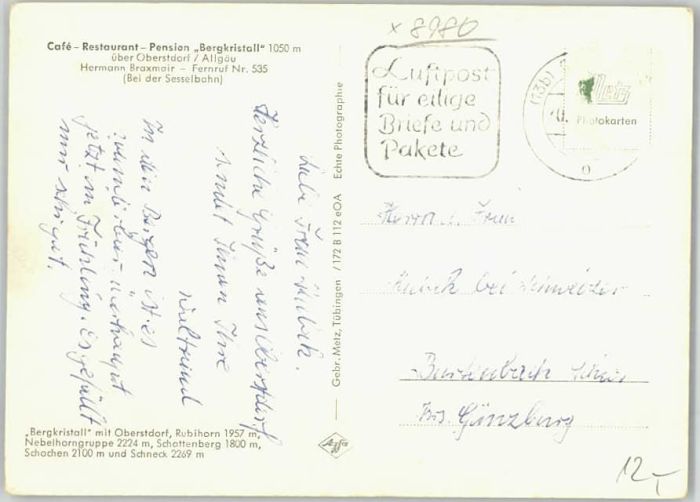 Café - Restaurant - Pension „Bergkristall" 1050 m
über Oberstdorf / Allgäu
Hermann Braxmair - Fernruf Nr. 535
(Bei der Sesselbahn)
x 8980
Luftpost
für eilige
Briefe und
Pakete
(13b)
Metz
Photokarten
Liebe Frau Kubick.
Herzliche Grüße aus Oberstdorf
Ihnen Ihre
Waltraud
In den Bergen ist es
wunderbar überhaupt
jetzt im Frühling. Es gefällt
mir sehr gut.
Gebr. Metz, Tübingen /172 B 112 eOA Echte Photographie
Herrn u. Frau
Kubick bei Schneider
Burtenbach
Krs. Günzburg
„Bergkristall" mit Oberstdorf, Rubihorn 1957 m,
Nebelhorngruppe 2224 m, Schattenberg 1800 m,
Schochen 2100 m und Schneck 2269 m
Agfa
12,-